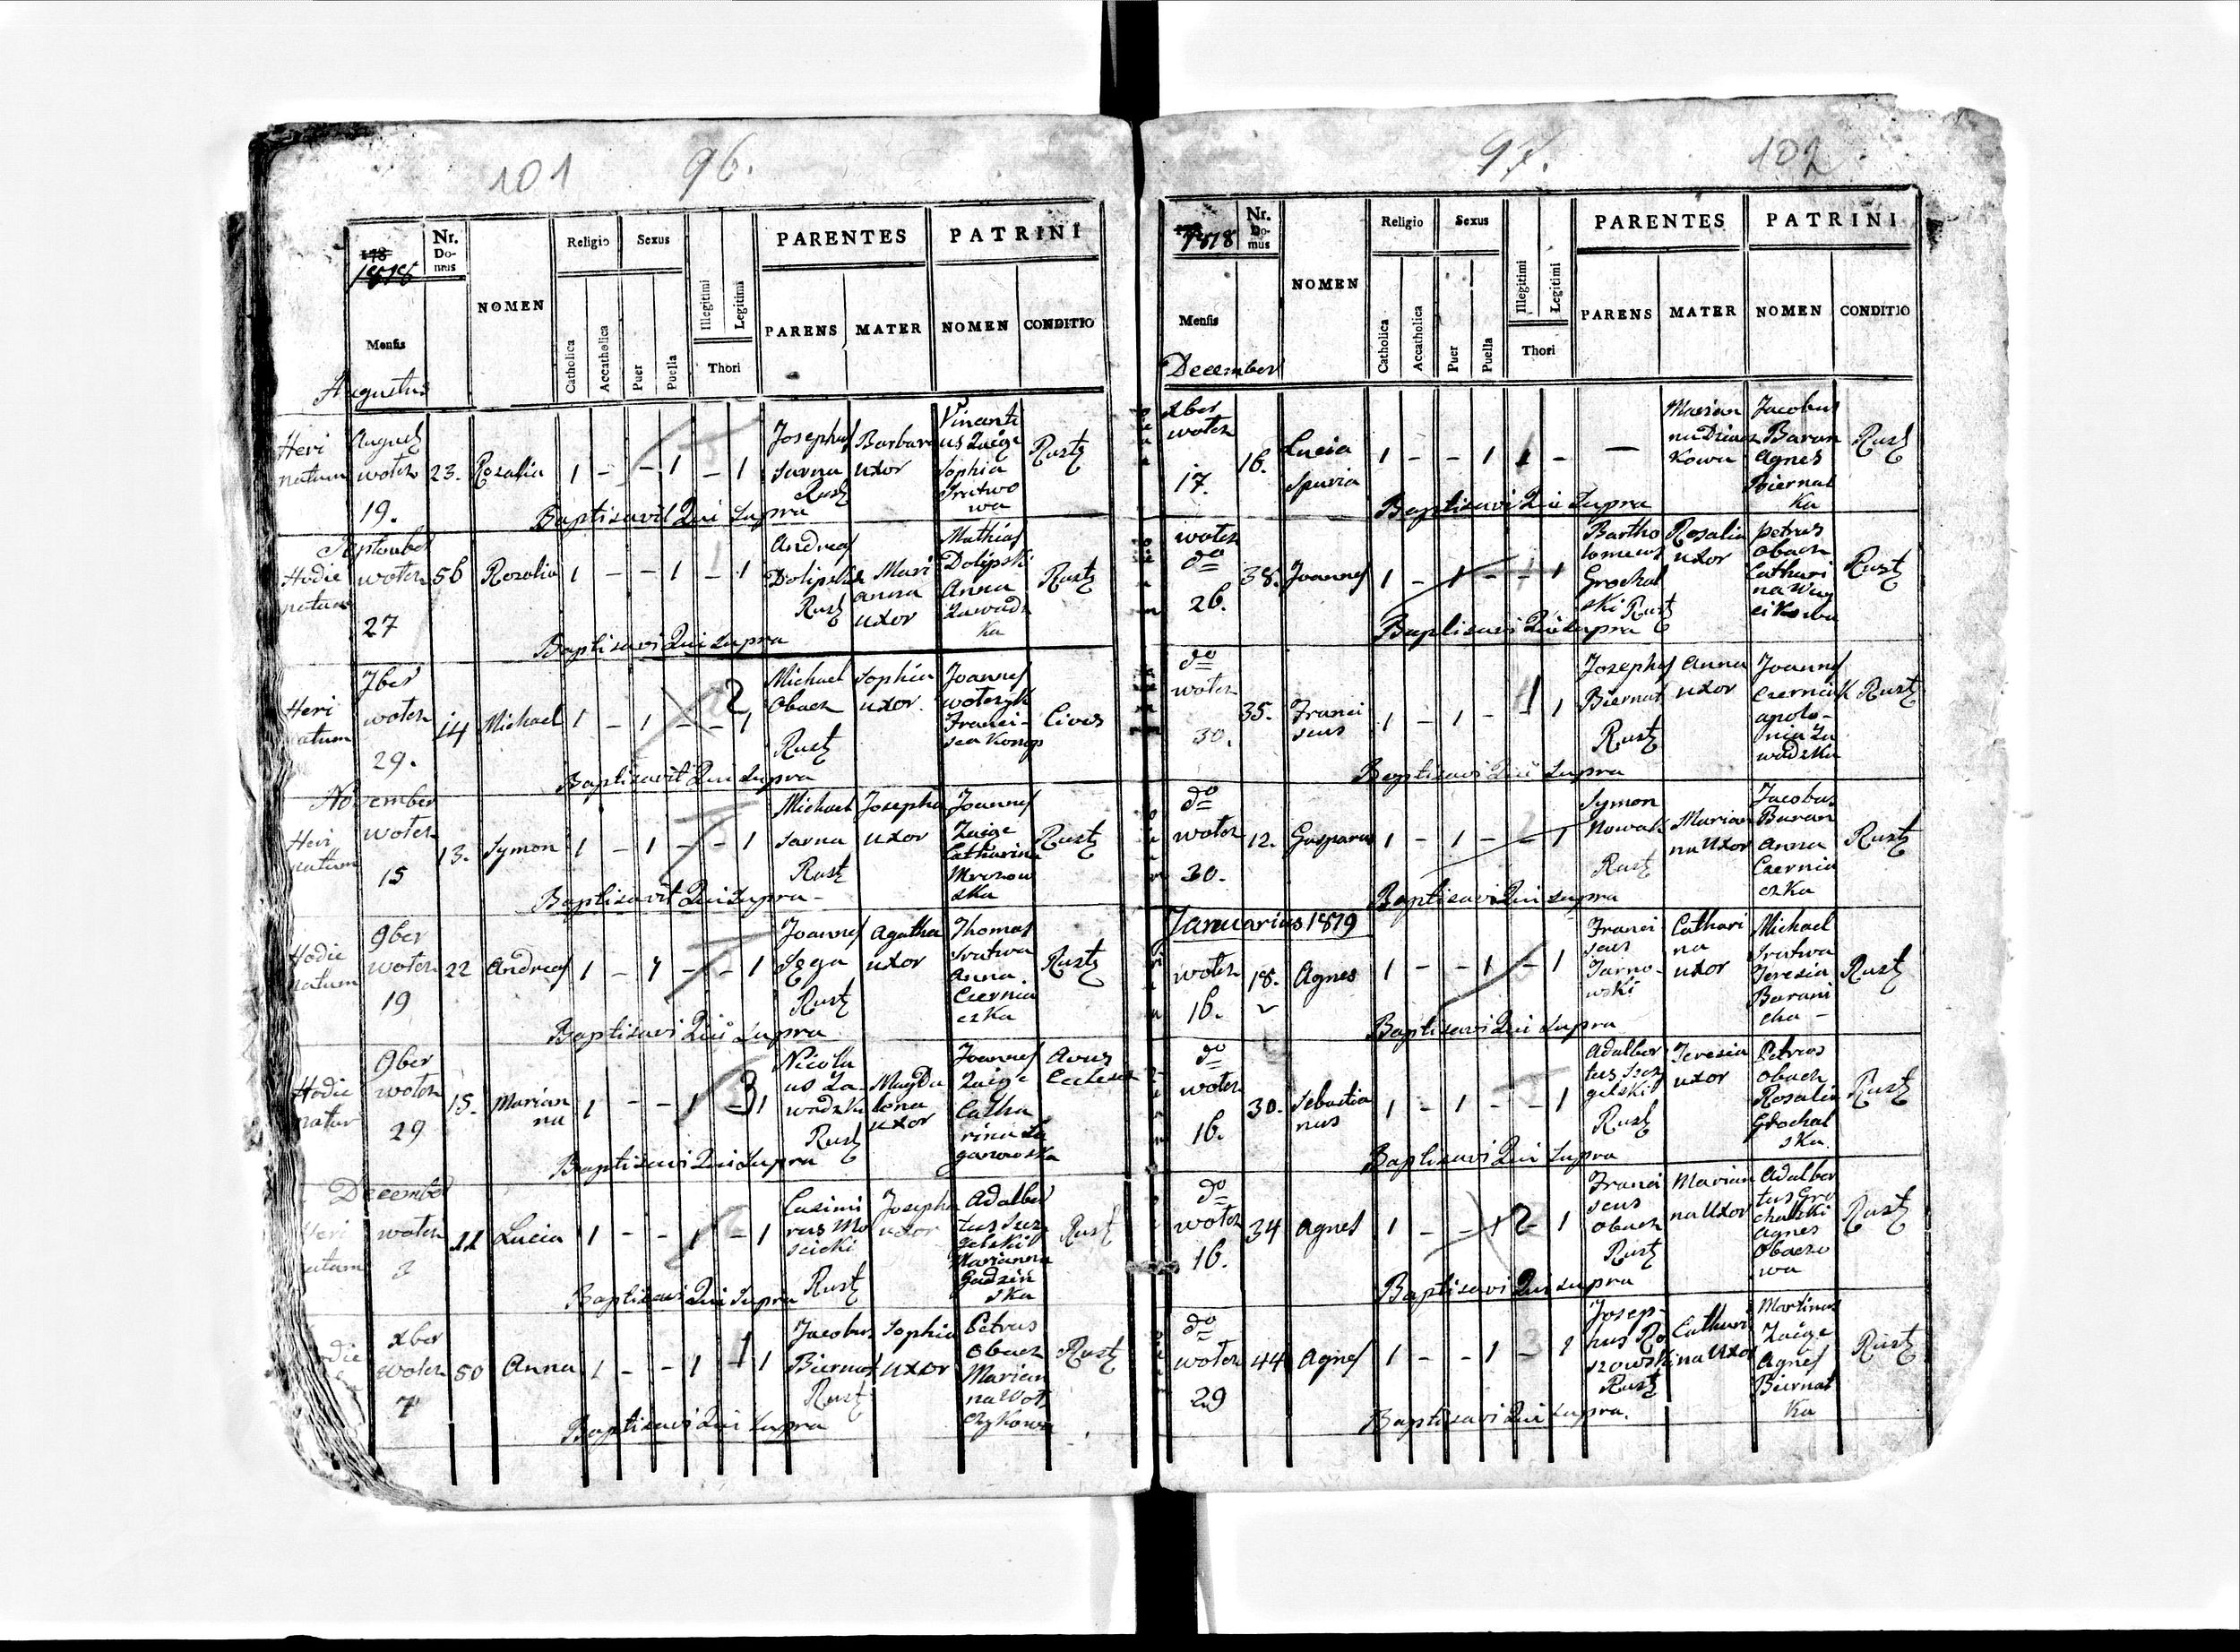 101 96.
178
1818
Nr. Domus
NOMEN
Religio
Sexus
Illegitimi
Legitimi
Thori
PARENTES
PATRINI
Mensis
Catholica
Accatholica
Puer
Puella
PARENS
MATER
NOMEN
CONDITIO
Augustus
Heri natum
August woten 19.
23.
Rosalia
1 - - 1 - 1
Josephus Sarna Rust
Barbara uxor
Vincentius Zaige Sophia
Rust
Baptisavit Qui Supra
September
Hodie natum
woten 27
56
Rosalia
1 - - 1 - 1
Andreas Dolipski Rust
Mari anna uxor
Mathias Dolipski Anna Zawadz ka
Rust
Baptisavi Qui Supra
Heri natum
7ber woten 29.
14
Michael
1 - 1 - - 1
2
Michael Obacz Rust
Sophia uxor.
Joannes wotczyk Franci- sca Konop
Cives
Baptisavit Qui Supra
November
Heri natum
woten 15
13.
Symon
1 - 1 - - 1
Michael Sarna Rust
Josepha uxor
Joannes Zaige Catharina
Rust
Baptisavit Qui Supra
Hodie natum
9ber woten 19
22
Andreas
1 - 1 - - 1
Joannes Rust
Agatha uxor
Thomas Srutwa Anna Czernia czka
Rust
Baptisavi Qui Supra
Hodie natur
9ber woten 29
15.
Marian na
1 - - 1 - 1
3
Nicola us Za- wadzki Rust
Magda lena uxor
Joannes Zaige Catha rina
Baptisavi Qui Supra
December
woten 3
11
Lucia
1 - - 1 - 1
Casimi rus Mo scicki Rust
Josepha uxor
Adalber tus Marianna
Rust
Baptisavi Qui Supra
xber woten 7
50
Anna
1 - - 1 1
Jacobus Biernat Rust
Sophia uxor
Petrus Obacz Marian na Wot czykowa
Rust
Baptisavi Qui Supra
97. 102
1818
Nr. Domus
NOMEN
Religio
Sexus
Illegitimi
Legitimi
Thori
PARENTES
PATRINI
Mensis
Catholica
Accatholica
Puer
Puella
PARENS
MATER
NOMEN
CONDITIO
December
xber woten 17.
16.
Lucia Spuria
1 - - 1 1 -
—
Marian na
Jacobus Baran Agnes Biernat Ka
Rust
Baptisavi Qui Supra
woten do 26.
38.
Joannes
1 - 1 - - 1
Bartho lomeus Grochal ski Rust
Rosalia uxor
Petrus Obacz Cathari na
Rust
Baptisavi Qui Supra
do woten 30.
35.
Franci scus
1 - 1 - 1
Josephus Biernat Rust
Anna uxor
Joannes Czerniak Apolo- nia Za wadzka
Rust
Baptisavi Qui Supra
do woten 30.
12.
Gasparus
1 - 1 - - 1
Symon Nowak Rust
Marian na Uxor
Jacobus Baran Anna Czernia czka
Rust
Baptisavi Qui Supra
Januarius 1819
woten 16.
18.
Agnes
1 - - 1 - 1
Franci scus Tarno- wski
Cathari na uxor
Michael Srutwa Teresia Barani cha -
Rust
Baptisavi Qui Supra
do woten 16.
30.
Sebastia nus
1 - 1 - - 1
Adalber tus Rust
Teresia uxor
Petrus Obacz Rosalia Grochal ska.
Rust
Baptisavi Qui Supra
do woten 16.
34
Agnes
1 - - 1 2 1
Franci scus Obacz Rust
Marian na Uxor
Adalber tus Gro chalski Agnes Obaczo wa
Rust
Baptisavi Qui Supra
do woten 29
44
Agnes
1 - - 1 3 1
Josep- hus Ro szowski Rust
Cathari na Uxor
Martinus Zaige Agnes Biernat Ka
Rust
Baptisavi Qui Supra.